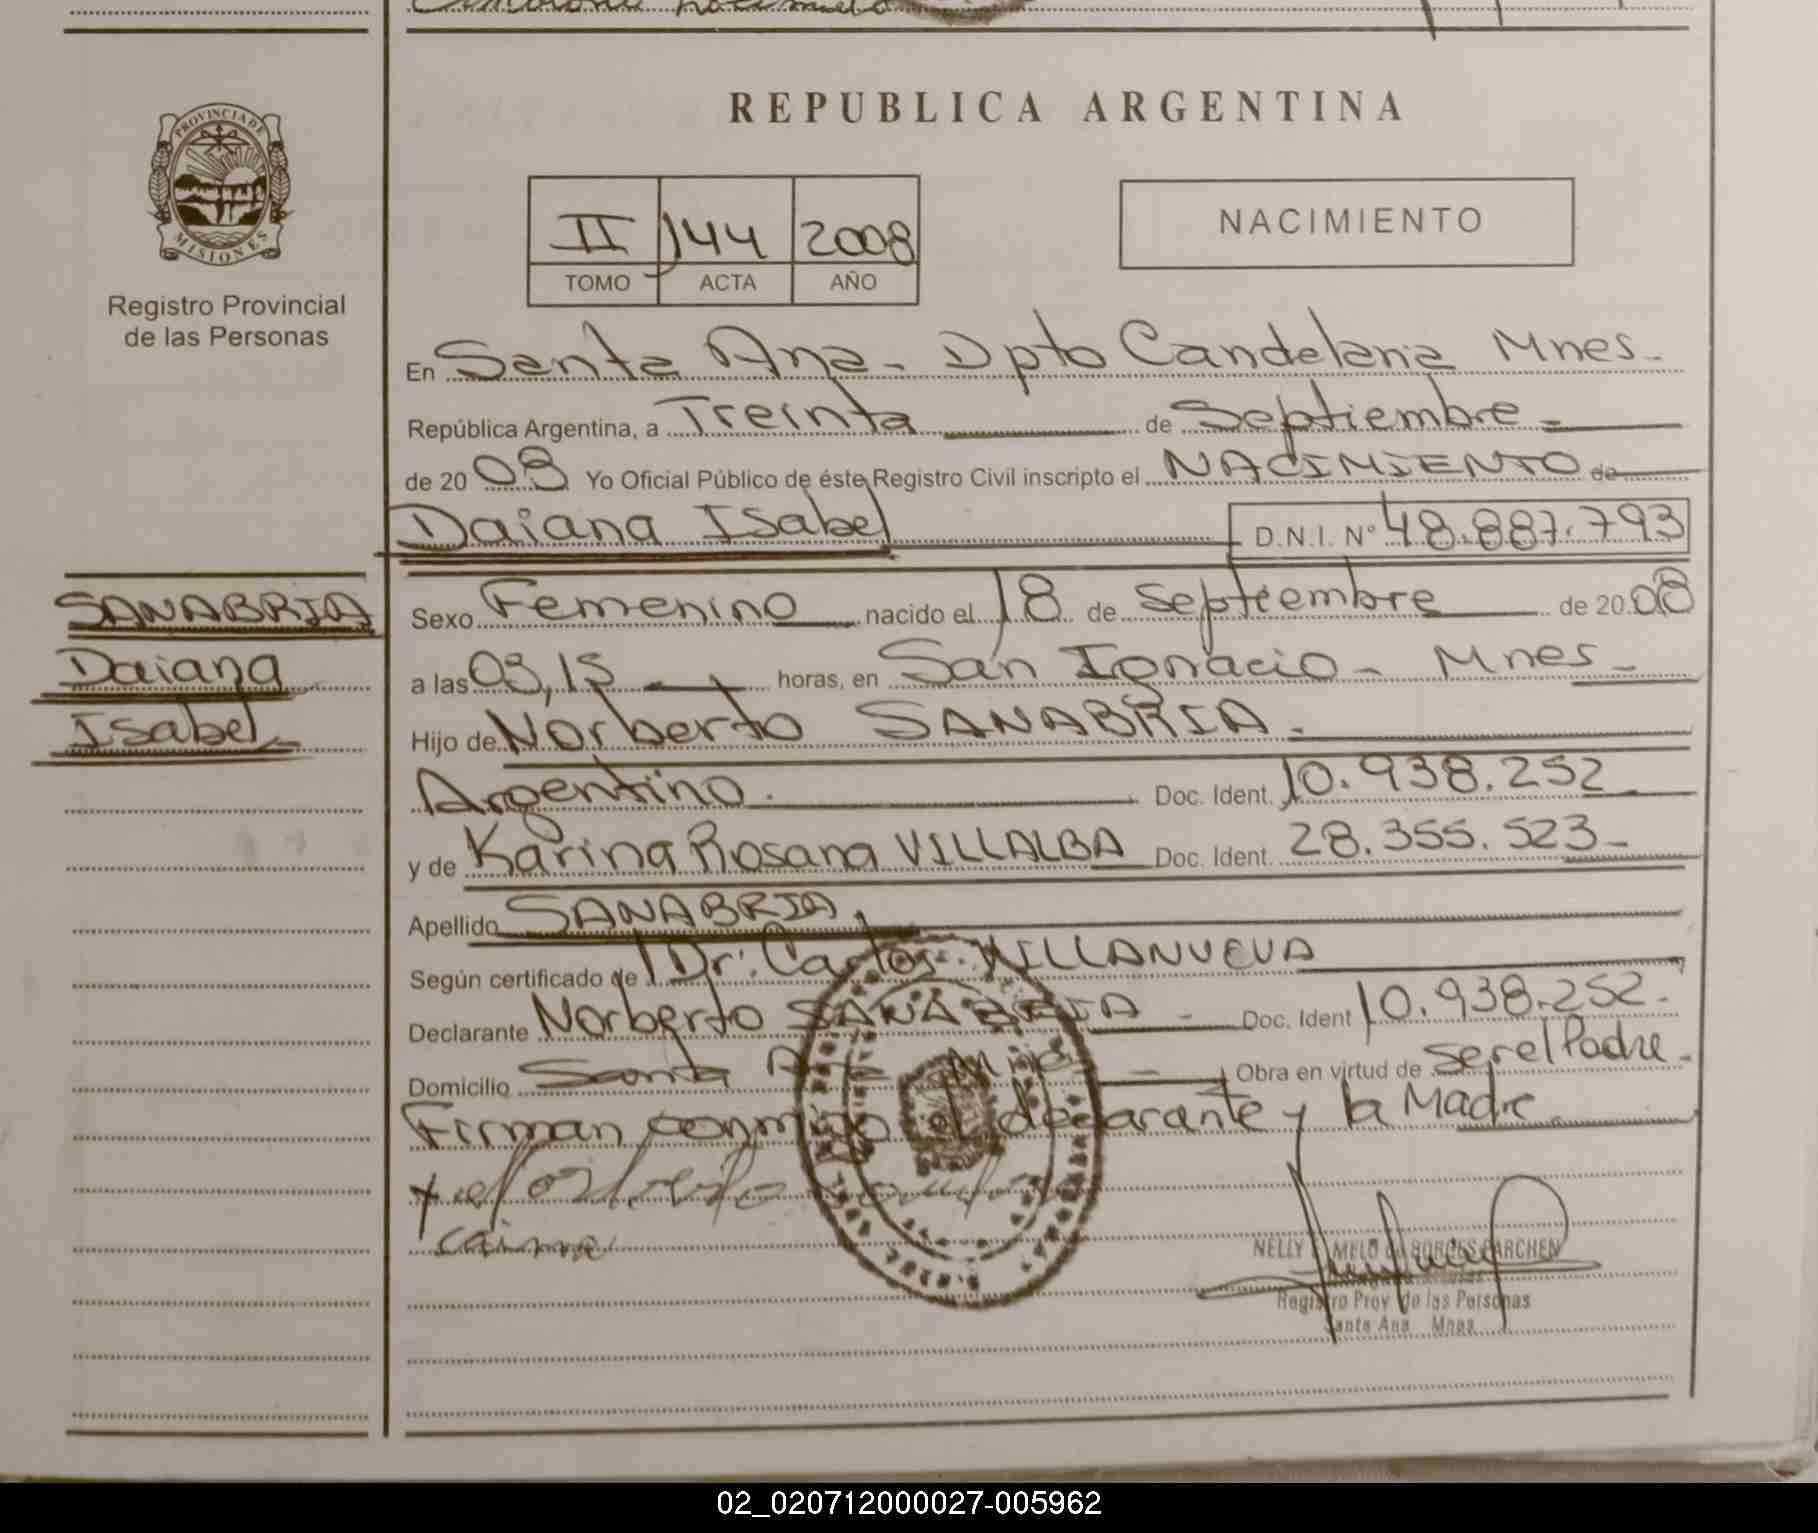 REPUBLICA ARGENTINA
PROVINCIA DE
MISIONES
Registro Provincial
de las Personas
II 144 2008
TOMO ACTA AÑO
NACIMIENTO
En Santa Ana - Dpto Candelaria Mnes.
República Argentina, a Treinta de Septiembre
de 2008 Yo Oficial Público de éste Registro Civil inscripto el NACIMIENTO de
Daiana Isabel D.N.I. Nº 48.887.793
SANABRIA
Daiana
Isabel
Sexo Femenino nacido el 18 de Septiembre de 2008
a las 03,15 horas, en San Ignacio - Mnes
Hijo de Norberto SANABRIA.
Argentino. Doc. Ident. 10.938.252
y de Karina Rosana VILLALBA Doc. Ident. 28.355.523
Apellido SANABRIA
Según certificado de Dr. Carlos VILLANUEVA
Declarante Norberto SANABRIA - Doc. Ident 10.938.252.
Domicilio Santa Obra en virtud de ser el Padre.
Firman conmigo el declarante y la Madre
NELLY MELO de BORGES PARCHEN
Registro Prov de las Personas
Santa Ana Mnes
02_020712000027-005962